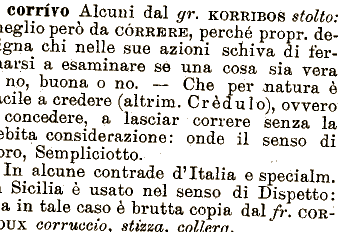 corrívo Alcuni dal gr. KORRIBOS stolto:
meglio però da CÓRRERE, perché propr. de-
igna chi nelle sue azioni schiva di fer-
marsi a esaminare se una cosa sia vera
no, buona o no. — Che per natura è
acile a credere (altrim. Crèdulo), ovvero
concedere, a lasciar correre senza la
ebita considerazione: onde il senso di
oro, Sempliciotto.
In alcune contrade d'Italia e specialm.
Sicilia è usato nel senso di Dispetto:
a in tale caso è brutta copia dal fr. COR-
OUX corruccio, stizza, collera.